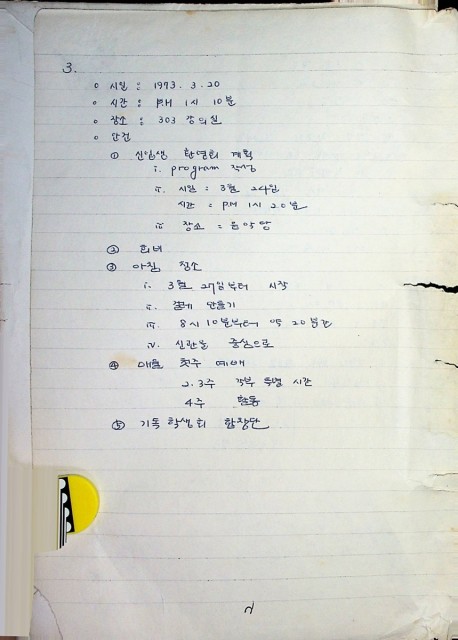 3.
o 시일 : 1973. 3. 20
o 시간 : P.M 1시 10분
o 장소 : 303 강의실
o 안건
① 신입생 환영회 계획
i. program 작성
ii. 시일 : 3월 24일
시간 : P.M 1시 20분
iii 장소 : 음악당
② 회비
③ 아침 청소
i. 3월 27일부터 시작
ii. 걸레 만들기
iii. 8시 10분부터 20분간
iv. 신관을 중심으로
④ 매월 첫주 예배
2. 3주 특별 시간
4주 활동
⑤ 기독 학생회 합창단
7